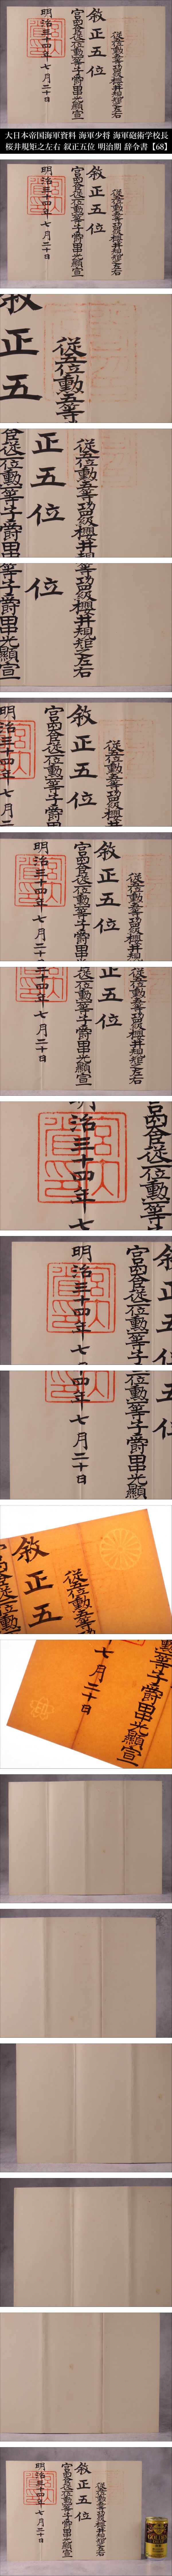 從五位勲五等功四級櫻井規矩之左右
敘正五位
宮内大臣從二位勲一等子爵田中光顯宣
明治三十四年七月二十日
大日本帝国海軍資料 海軍少将 海軍砲術学校長
桜井規矩之左右 叙正五位 明治期 辞令書【68】